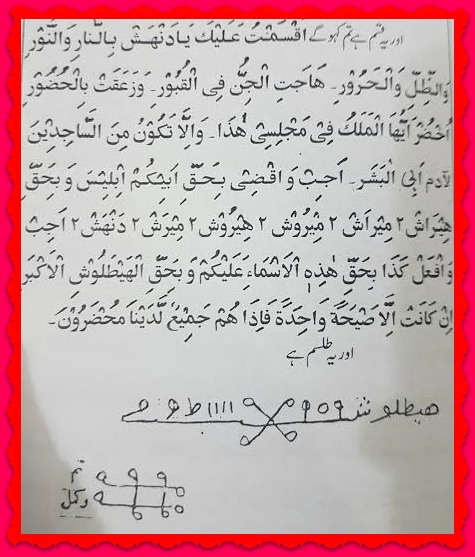 اور یہ قسم ہے تم کہو گے اَقْسَمْتُ عَلَیْكَ یَا دَنْهَشْ بِالنَّارِ وَالنُّوْرِ
وَالظِّلِّ وَالْحَرُوْرِ۔ هَاجَتِ الْجِنُّ فِی الْقُبُوْرِ۔ وَزَعَقَتْ بِالْحُضُوْرِ
اُحْضُرْ اَیُّهَا الْمَلَكُ فِیْ مَجْلِسِیْ هٰذَا۔ وَاِلَّا تَكُوْنُ مِنَ السَّاجِدِیْنَ
لِاٰدم اَبِی الْبَشَرِ۔ اَجِبْ وَاقْضِیْ بِحَقِّ اَبِیْكُمْ اِبْلِیْسَ وَبِحَقِّ
هِیْرَاشْ ٢ مِیْرَاشْ ٢ مِیْرُوْشْ ٢ هِیْرُوْشْ ٢ مِیْرَشْ ٢ دَنْهَشْ ٢ اَجِبْ
وَافْعَلْ كَذَا بِحَقِّ هٰذِهِ الْاَسْمَاءِ عَلَیْكُمْ وَبِحَقِّ الْهَیْطَلُوْشِ الْاَكْبَرِ
اِنْ كَانَتْ اِلَّا صَیْحَةً وَاحِدَةً فَاِذَا هُمْ جَمِیْعٌ لَّدَیْنَا مُحْضَرُوْنَ۔
اور یہ طلسم ہے
هیطلوش
تم
وكمل